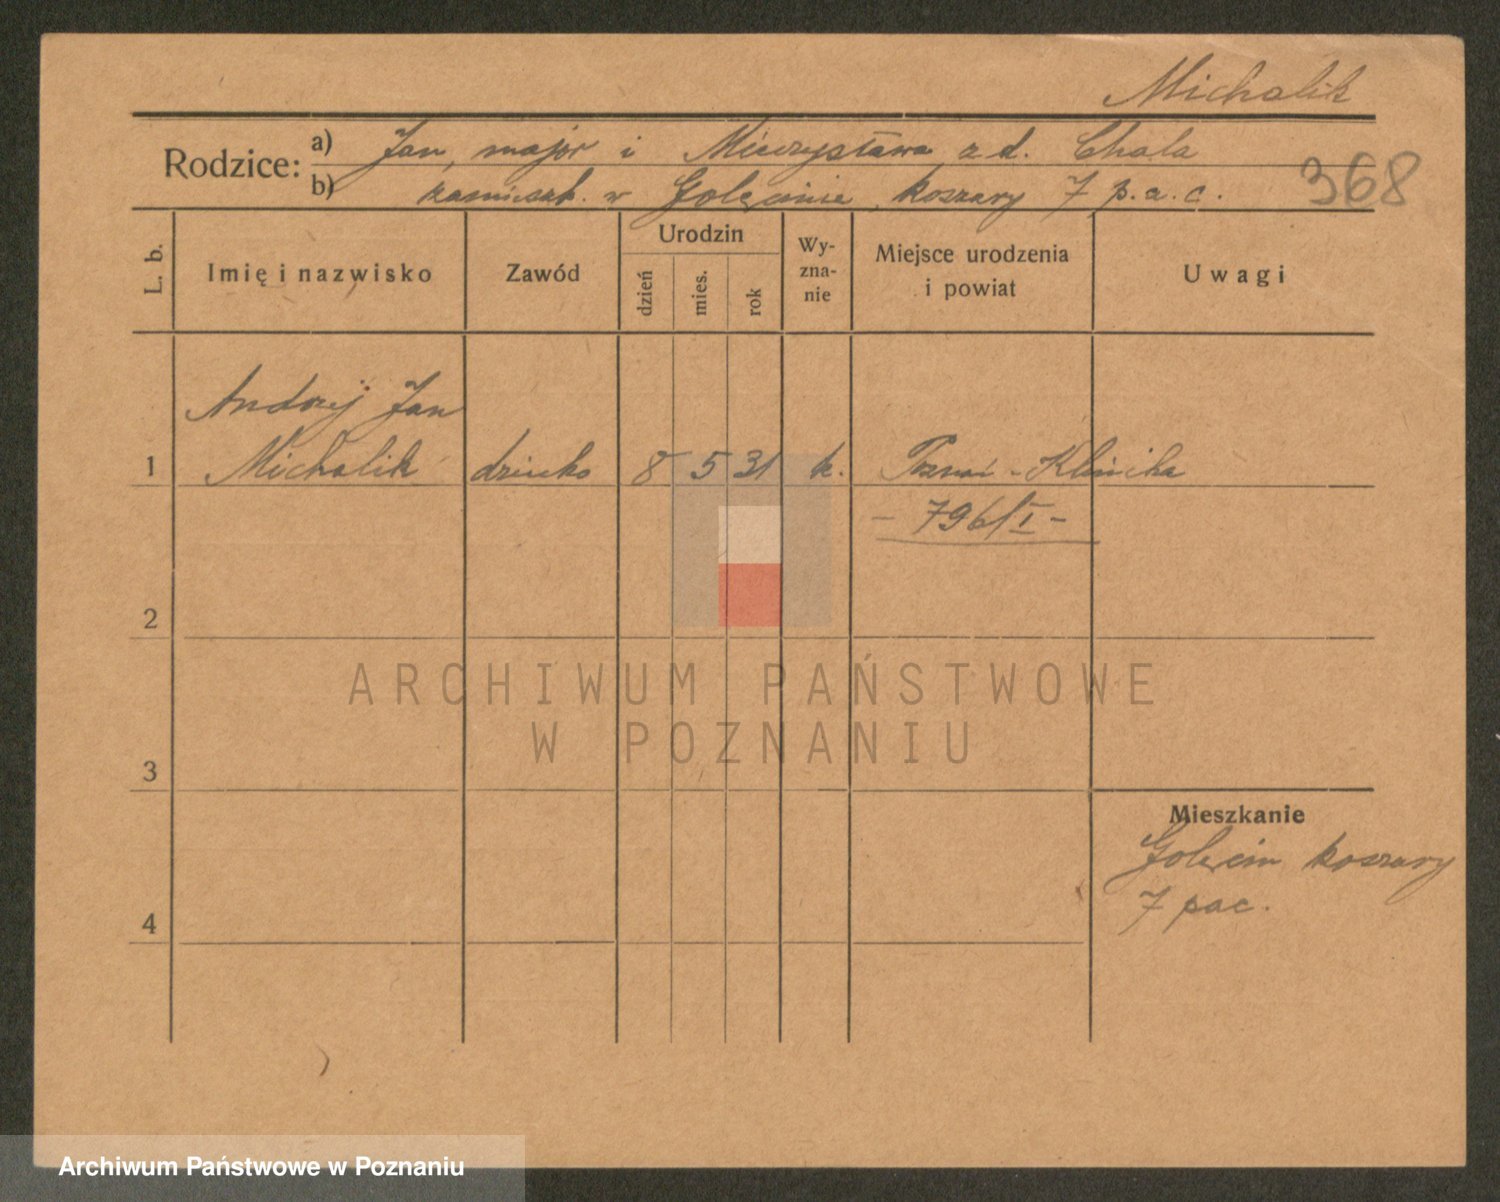 Michalik
Rodzice: a) Jan, major i Mieczysława z d. Chała
b) zamieszk. w Golęcinie, koszary 7 p.a.c.
368
L. b.
Imię i nazwisko
Zawód
Urodzin
dzień
mies.
rok
Wy-
zna-
nie
Miejsce urodzenia
i powiat
Uwagi
Andrzej Jan
1 Michalik dziecko 8 5 31 k. Poznań - Klinika
- 796/I -
2
3
4
Mieszkanie
Golęcin koszary
7 pac.
ARCHIWUM PAŃSTWOWE
W POZNANIU
Archiwum Państwowe w Poznaniu